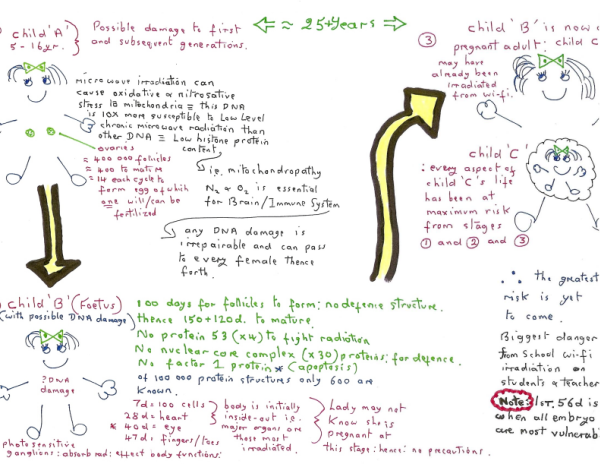 child 'A'
5 - 16yr.
Possible damage to first
and subsequent generations.
≈ 25+years
③
child 'B' is now a
pregnant adult: child C
may have
already been
irradiated
from wi-fi.
microwave irradiation can
cause oxidative & nitrosative
stress IB mitochondria ≡ this DNA
is 10x more susceptible to Low Level
chronic microwave radiation than
other DNA ≡ Low histone protein
content.
ovaries
= 400 000 follicles
= 400 to mature
= 14 each cycle to
form egg of which
one will/can be
fertilized
i.e. mitochondropathy
N₂ & O₂ is essential
for Brain/Immune System
any DNA damage is
irrepairable and can pass
to every female thence
forth.
child 'C'
: every aspect of
child 'C's life
has been at
maximum risk
from stages
① and ② and ③
child 'B' (Foetus)
(with possible DNA damage)
? DNA
damage
photosensitive
ganglions: absorb rad: effect body functions.
100 days for follicles to form: no defence structure.
thence 150+120d. to mature.
No protein 53 (x4) to fight radiation
No nuclear core complex (x30) proteins; for defence.
No factor 1 protein * (apoptosis)
of 100 000 protein structures only 600 are
known.
7d = 100 cells
28d = heart
* 40d = eye
47d = fingers/toes
body is initially
inside-out i.e.
major organs are
those most
irradiated.
Lady may not
know she is
pregnant at
this stage: hence: no precautions.
∴ the greatest
risk is yet
to come.
Biggest danger
from School wi-fi
irradiation on
students & teacher
Note: 1st, 56d is
when all embryo
are most vulnerab